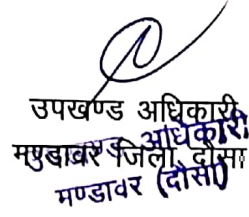 उपखण्ड अधिकारी
मण्डावर जिला दौसा
उपखण्ड अधिकारी
मण्डावर (दौसा)